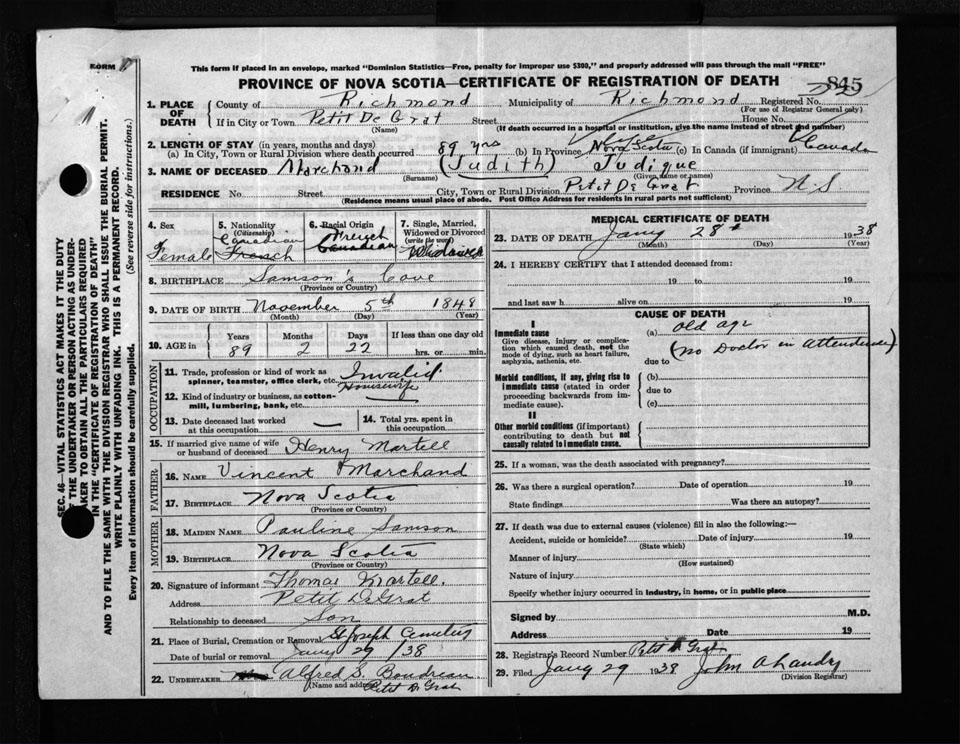 FORM D
This form if placed in an envelope, marked "Dominion Statistics—Free, penalty for improper use $300," and properly addressed will pass through the mail "FREE"
PROVINCE OF NOVA SCOTIA—CERTIFICATE OF REGISTRATION OF DEATH
845
1. PLACE OF DEATH
County of Richmond Municipality of Richmond Registered No.
(For use of Registrar General only)
If in City or Town Petit De Grat Street House No.
(Name) (If death occurred in a hospital or institution, give the name instead of street and number)
2. LENGTH OF STAY (in years, months and days)
(a) In City, Town or Rural Division where death occurred 89 yrs (b) In Province Nova Scotia (c) In Canada (if immigrant) Canada
3. NAME OF DECEASED Marchand (Judith) Judique
(Surname) (Given name or names)
RESIDENCE No. Street City, Town or Rural Division Petit De Grat Province N.S
(Residence means usual place of abode. Post Office Address for residents in rural parts not sufficient)
4. Sex
Female
5. Nationality
(Citizenship)
Canadian
French
6. Racial Origin
French
Canadian
7. Single, Married,
Widowed or Divorced
(write the word)
8. BIRTHPLACE Samson's Cove
(Province or Country)
9. DATE OF BIRTH November 5th 1848
(Month) (Day) (Year)
10. AGE in
Years Months Days If less than one day old
89 2 22 hrs. or min.
OCCUPATION
11. Trade, profession or kind of work as
spinner, teamster, office clerk, etc. Invalid
Housewife
12. Kind of industry or business, as cotton-
mill, lumbering, bank, etc.
13. Date deceased last worked
at this occupation —
14. Total yrs. spent in
this occupation
15. If married give name of wife
or husband of deceased Henry Martell
FATHER
16. NAME Vincent Marchand
17. BIRTHPLACE Nova Scotia
(Province or Country)
MOTHER
18. MAIDEN NAME Pauline Samson
19. BIRTHPLACE Nova Scotia
(Province or Country)
20. Signature of informant Thomas Martell.
Address Petit DeGrat
Relationship to deceased Son
21. Place of Burial, Cremation or Removal St Joseph Cemetery
Date of burial or removal Jany 29 / 38
22. UNDERTAKER Alfred S. Boudreau
(Name and address) Petit D Grat
MEDICAL CERTIFICATE OF DEATH
23. DATE OF DEATH Jany 28th 1938
(Month) (Day) (Year)
24. I HEREBY CERTIFY that I attended deceased from:
19 to 19
and last saw h alive on 19
CAUSE OF DEATH
I
Immediate cause
Give disease, injury or complica-
tion which caused death, not the
mode of dying, such as heart failure,
asphyxia, asthenia, etc.
(a) old age
(No Doctor in Attendance)
due to
Morbid conditions, if any, giving rise to
immediate cause (stated in order
proceeding backwards from im-
mediate cause).
(b)
due to
(c)
II
Other morbid conditions (if important)
contributing to death but not
causally related to immediate cause.
25. If a woman, was the death associated with pregnancy?
26. Was there a surgical operation? Date of operation 19
State findings Was there an autopsy?
27. If death was due to external causes (violence) fill in also the following:—
Accident, suicide or homicide? Date of injury 19
(State which)
Manner of injury
(How sustained)
Nature of injury
Specify whether injury occurred in industry, in home, or in public place
Signed by M.D.
Address Date 19
28. Registrar's Record Number Petit D Grat
29. Filed Jany 29 1938 John A Landry
(Division Registrar)
SEC. 46—VITAL STATISTICS ACT MAKES IT THE DUTY
THE UNDERTAKER OR PERSON ACTING AS UNDER-
TAKER TO OBTAIN ALL THE PARTICULARS REQUIRED
IN THE "CERTIFICATE OF REGISTRATION OF DEATH"
AND TO FILE THE SAME WITH THE DIVISION REGISTRAR WHO SHALL ISSUE THE BURIAL PERMIT.
WRITE PLAINLY WITH UNFADING INK. THIS IS A PERMANENT RECORD.
Every item of information should be carefully supplied. (See reverse side for instructions.)